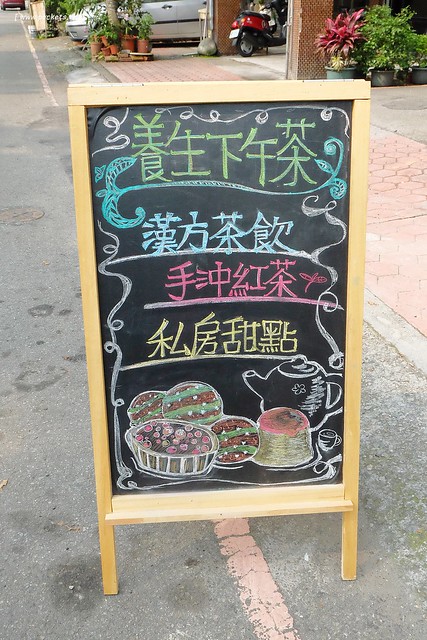 養生下午茶
漢方茶飲
手沖紅茶
私房甜點